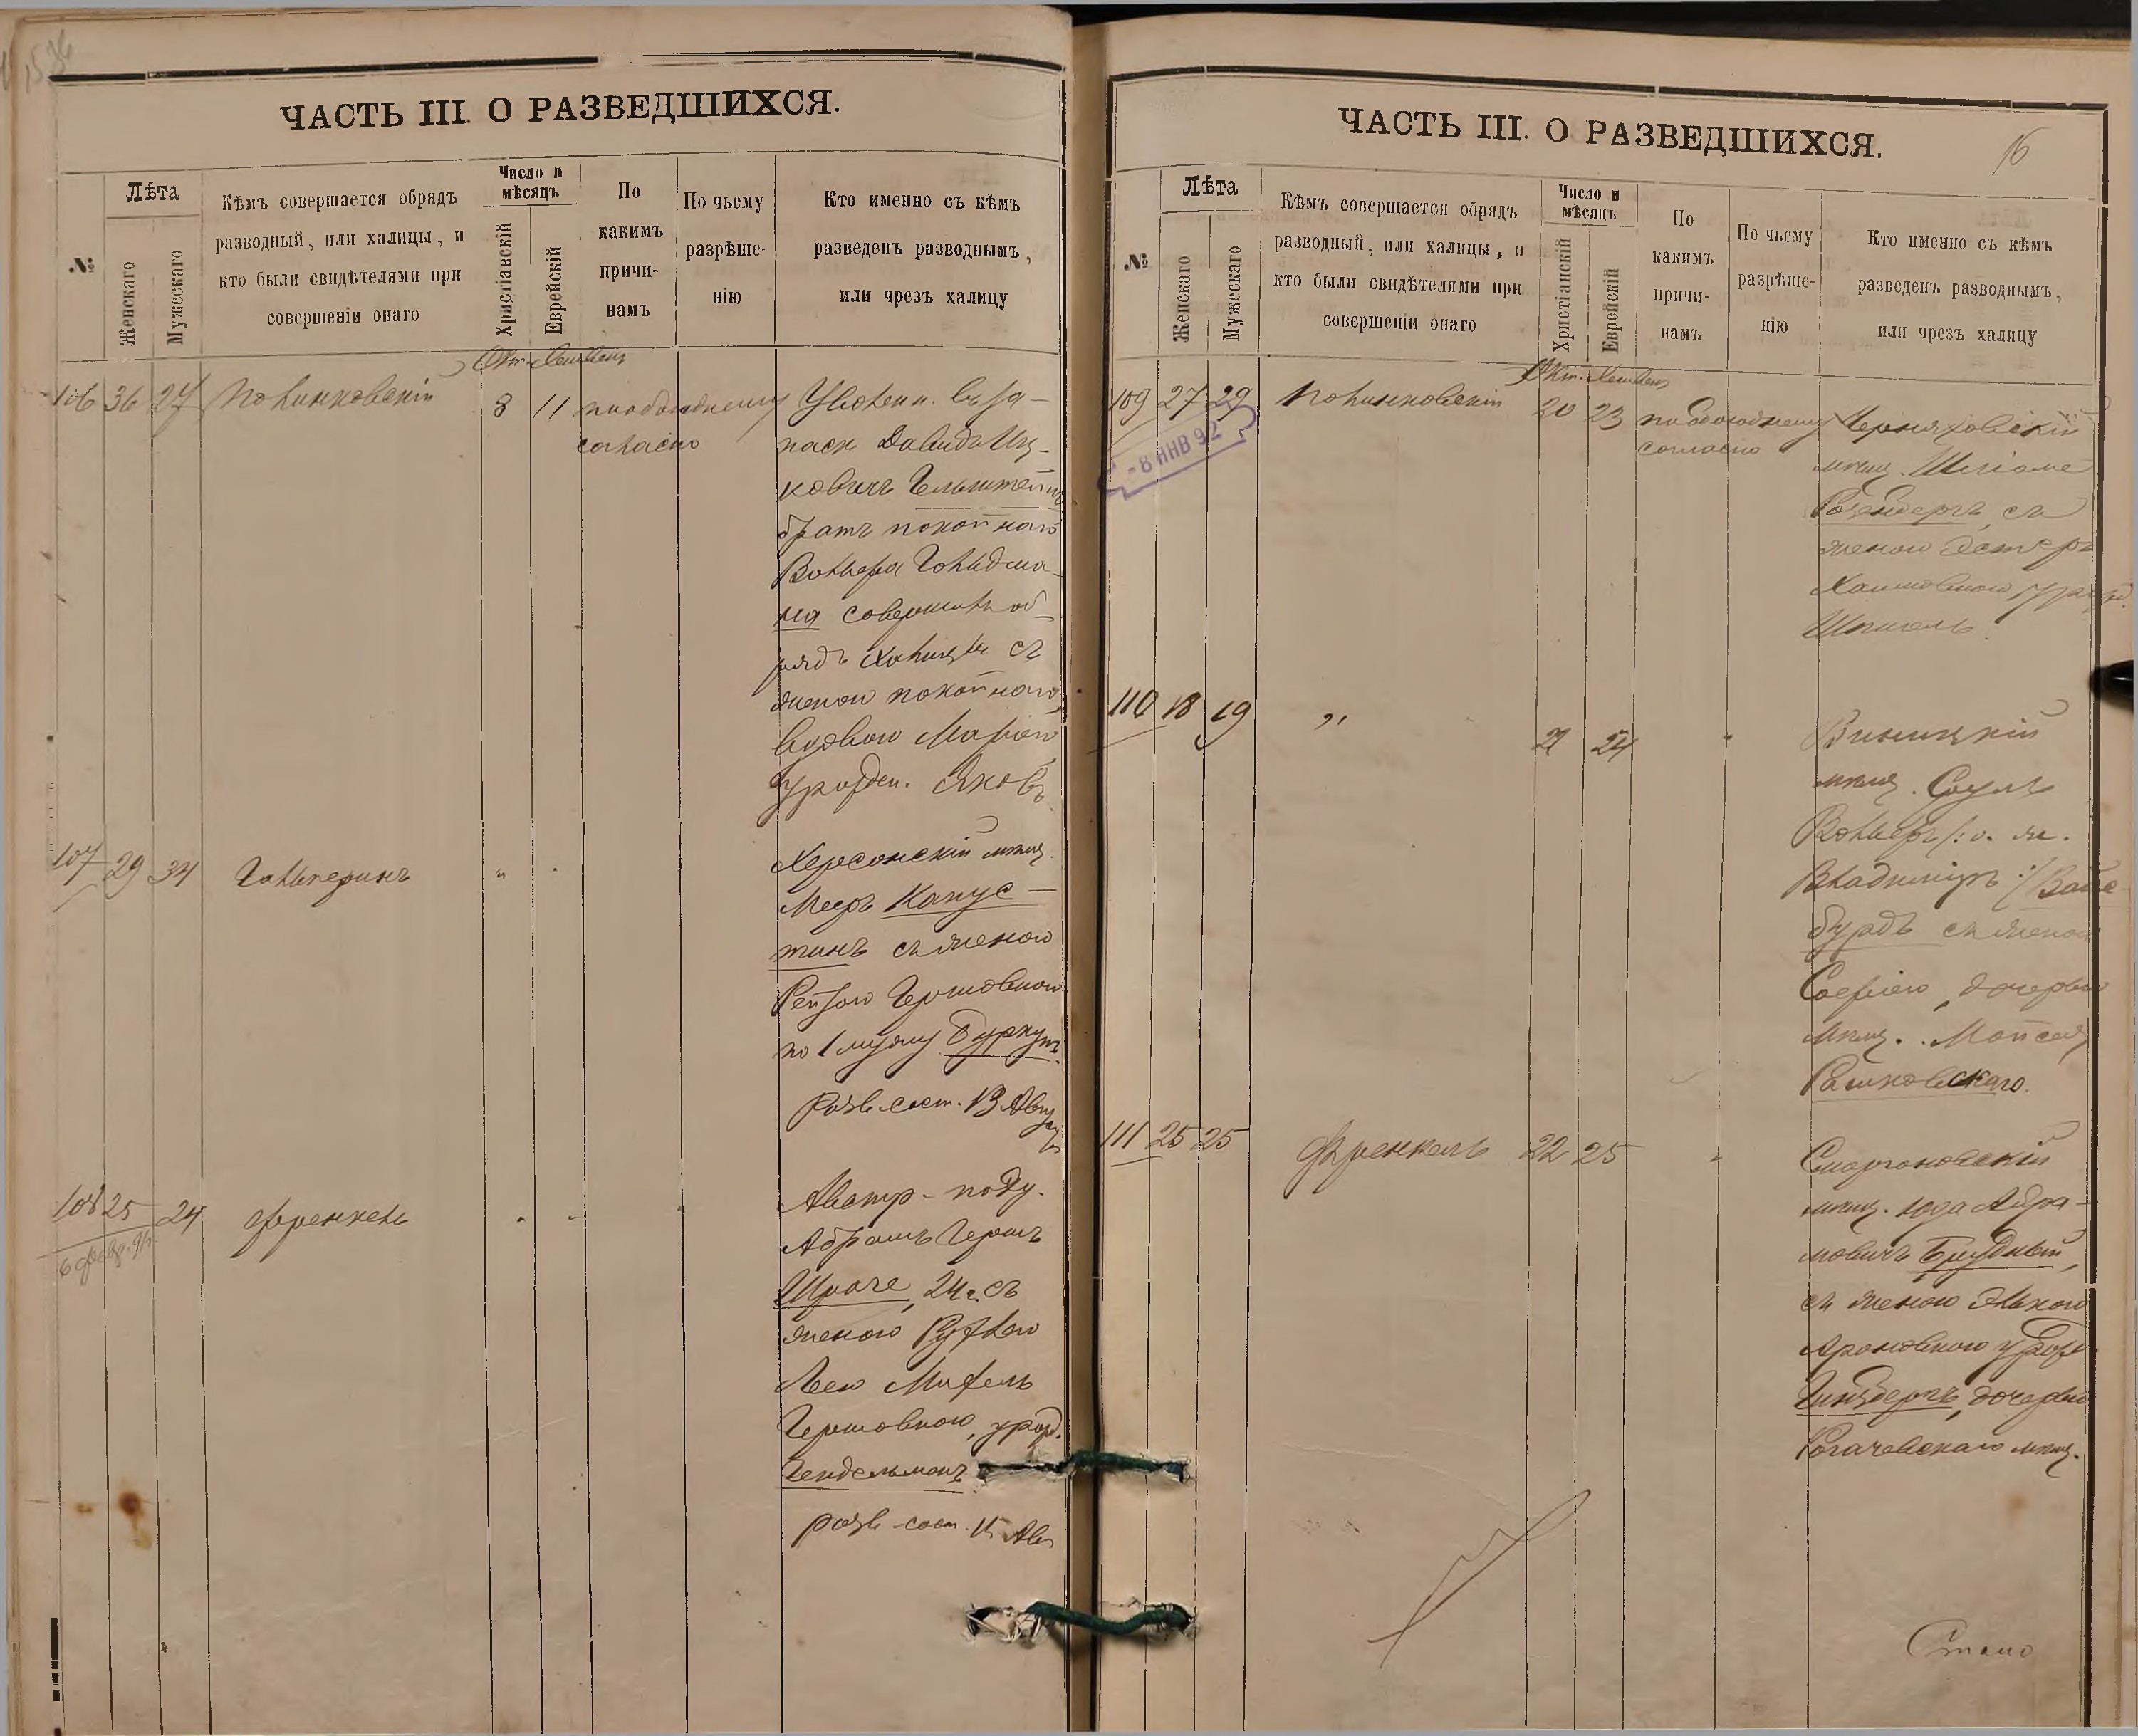 1536
ЧАСТЬ III. О РАЗВЕДШИХСЯ.
№
Лѣта
Женскаго
Мужескаго
Кѣмъ совершается обрядъ
разводный, или халицы, и
кто были свидѣтелями при
совершеніи онаго
Число и
мѣсяцъ
Христіанскій
Еврейскій
По
какимъ
причи-
намъ
По чьему
разрѣше-
нію
Кто именно съ кѣмъ
разведенъ разводнымъ,
или чрезъ халицу
Окт. Хешвенъ
106 36 27 Полинковскій 8 11 по обоюдному
согласію
Уволен. въ за-
пасн Давидъ Иц-
ковичъ Гельштейнъ
братъ покойнаго
Вольфа Гольдма-
на совершилъ об-
рядъ халицы съ
женою покойнаго,
вдовою Маріею
урожден. Яковъ
107 29 34 Гальперинъ " "
Херсонскій мѣщ.
Мееръ Капус-
тинъ съ женою
Рейзою Гершовною
по 1 мужу Буркутъ.
разв. сост. 13 Август
108 25 24 Френкель " " "
6 февр.
Австр. подд.
Абрамъ Гершъ
Шраге, 24 г. съ
женою Рухлею
Леею Матель
Гершовною, урожд.
Гендельманъ
разв. сост. 15 Авг
ЧАСТЬ III. О РАЗВЕДШИХСЯ.
16
№
Лѣта
Женскаго
Мужескаго
Кѣмъ совершается обрядъ
разводный, или халицы, и
кто были свидѣтелями при
совершеніи онаго
Число и
мѣсяцъ
Христіанскій
Еврейскій
По
какимъ
причи-
намъ
По чьему
разрѣше-
нію
Кто именно съ кѣмъ
разведенъ разводнымъ,
или чрезъ халицу
Окт. Хешвенъ
109 27 29 Полинковскій 20 23 по обоюдному
согласію
-8 ЯНВ 92
Черняховскій
мѣщ. Шліоме
Розенбергъ, съ
женою Эстеръ
Хаимовною урожд.
Шпигель.
110 18 19 " 21 24 "
Виницкій
мѣщ. Саулъ
Вольфъ /: о. же.
Владиміръ :/ Вайс-
бурдъ съ женою
Софіею, дочерью
мѣщ. Мойсея
Рашковскаго.
111 25 25 Френкель 22 25 "
Сморгоновскій
мѣщ. Юда Абра-
мовичъ Брудный,
съ женою Элькою
Ароновною урож
Гинзбергъ, дочерью
Рогачевскаго мѣщ.